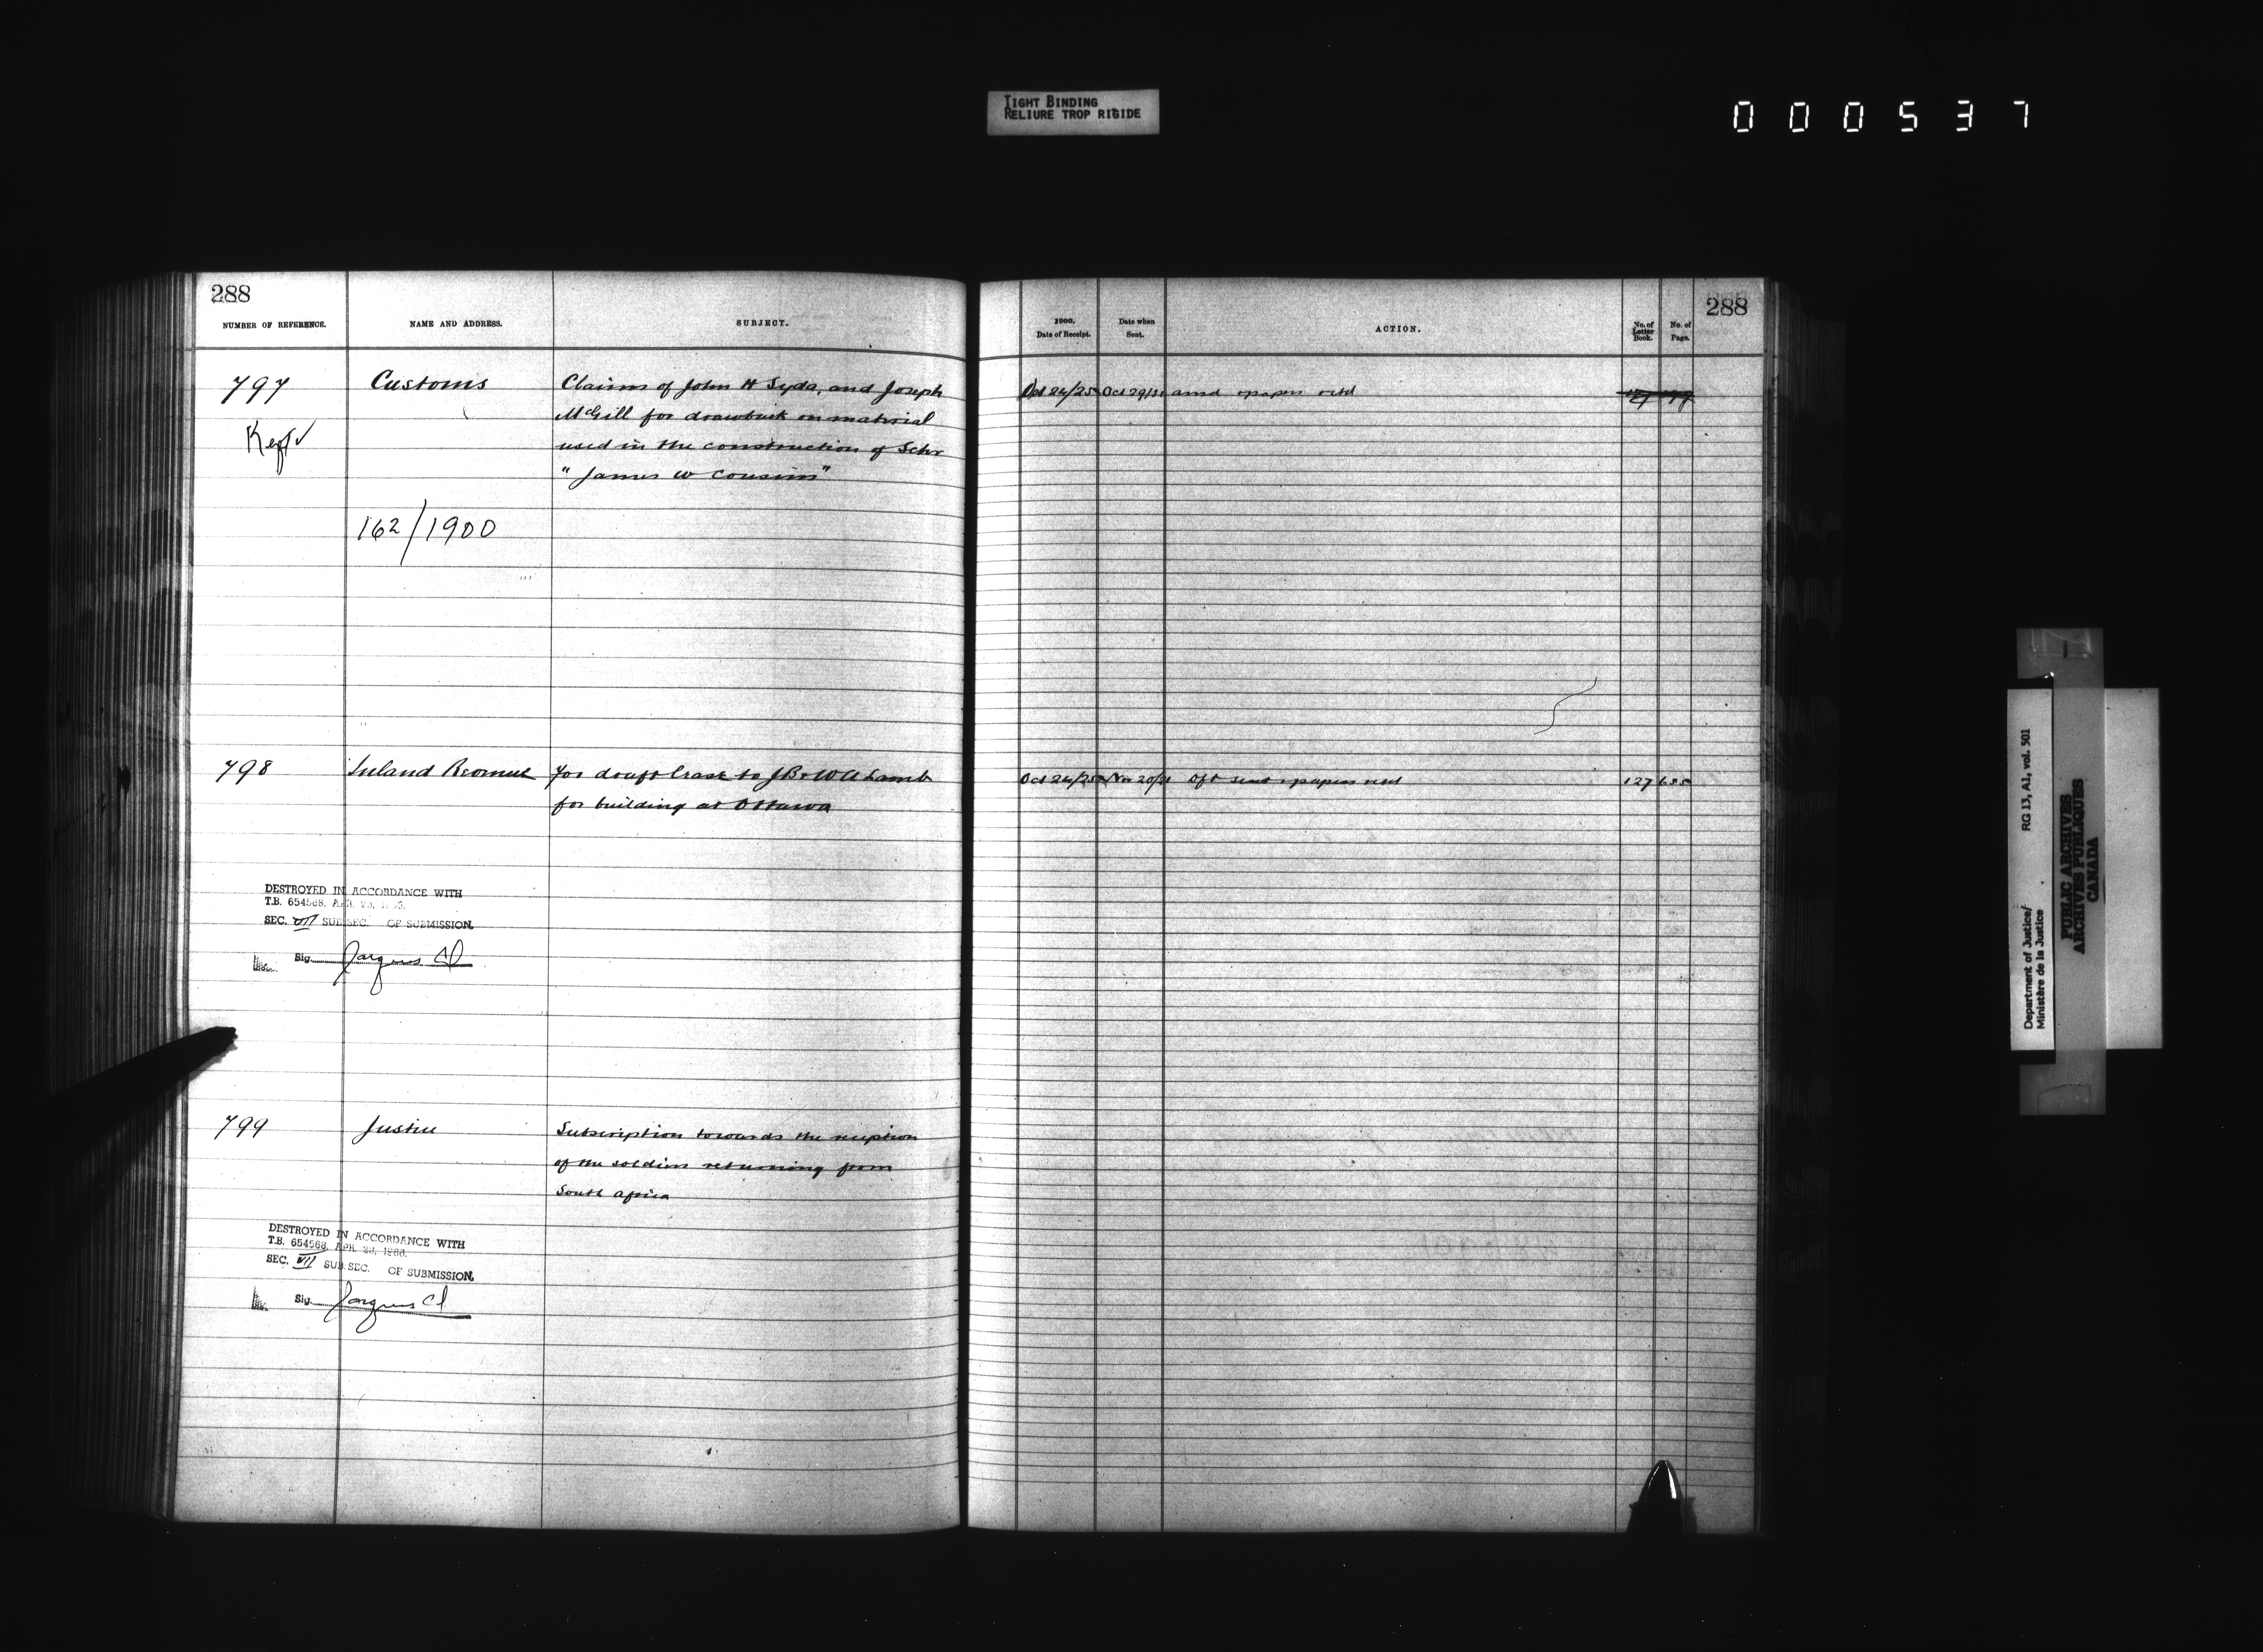 TIGHT BINDING
RELIURE TROP RIGIDE
000537
288
NUMBER OF REFERENCE. NAME AND ADDRESS. SUBJECT.
797 Customs Claims of John H Syda, and Joseph
McGill for drawback on material
Kept used in the construction of Schr
"James W Cousins"
162/1900
798 Inland Revenue for draft lease to J B & W A Lamb
for building at Ottawa
DESTROYED IN ACCORDANCE WITH
T.B. 654568, APR. 28,
SEC. VII SUB.SEC. OF SUBMISSION.
Sig.
799 Justice Subscription towards the reception
of the soldiers returning from
South Africa
DESTROYED IN ACCORDANCE WITH
T.B. 654568, APR. 28, 1966.
SEC. VII SUB.SEC. OF SUBMISSION.
Sig.
288
1900. Date of Receipt. Date when Sent. ACTION. No. of Letter Book. No. of Page.
Oct 24/25 Oct 29/31 ansd & papers retd
Oct 24/25 Nov 20/21 Dft sent & papers retd 127 635
Department of Justice/ RG 13, A1, vol. 501
Ministère de la Justice
PUBLIC ARCHIVES
ARCHIVES PUBLIQUES
CANADA